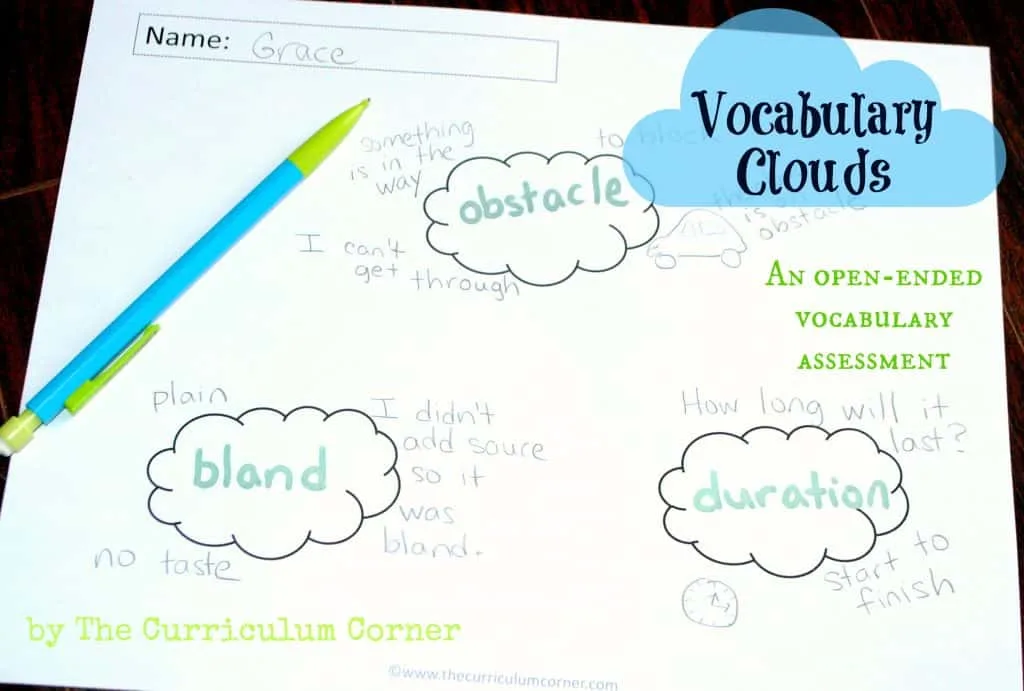 Name: Grace
Vocabulary
Clouds
something
is in the
way
to block
obstacle
the
is
obstacle
I can't
get through
An open-ended
vocabulary
assessment
plain
bland
I didn't
add souce
so it
was
bland.
no taste
How long will it
last?
duration
start to
finish
by The Curriculum Corner
©www.thecurriculumcorner.com